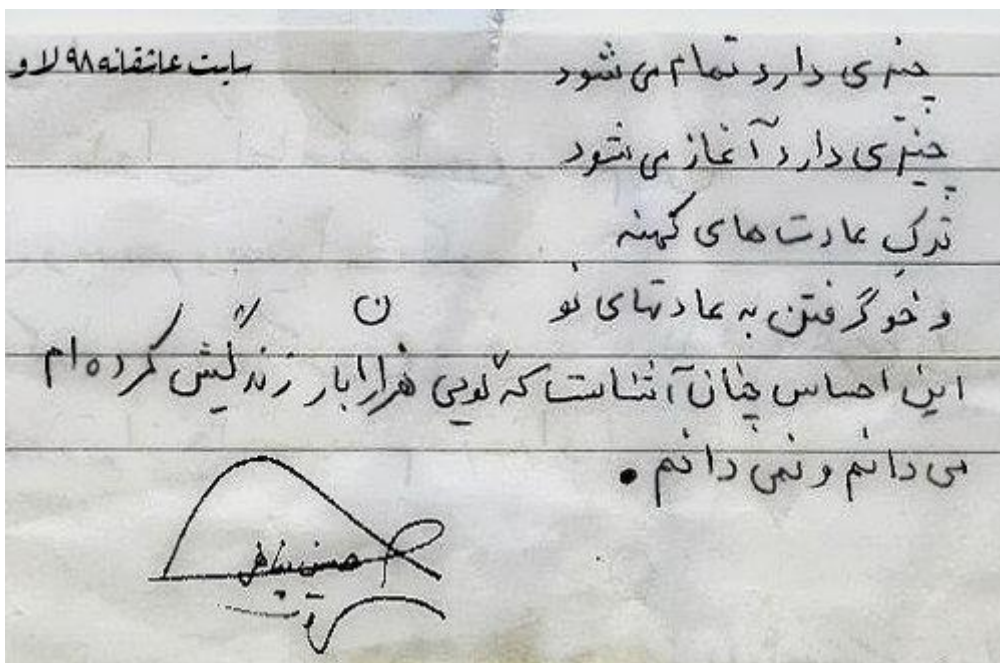 چیزی دارد تمام می شود
سایت عاشقانه ۹۸ لاو
چیزی دارد آغاز می شود
ترکِ عادت های کهنه
و خو گرفتن به عادتهای نو
این احساس چنان آشناست که گویی هزاران بار زندگیش کرده ام
می دانم و نمی دانم .
حسین پناهی